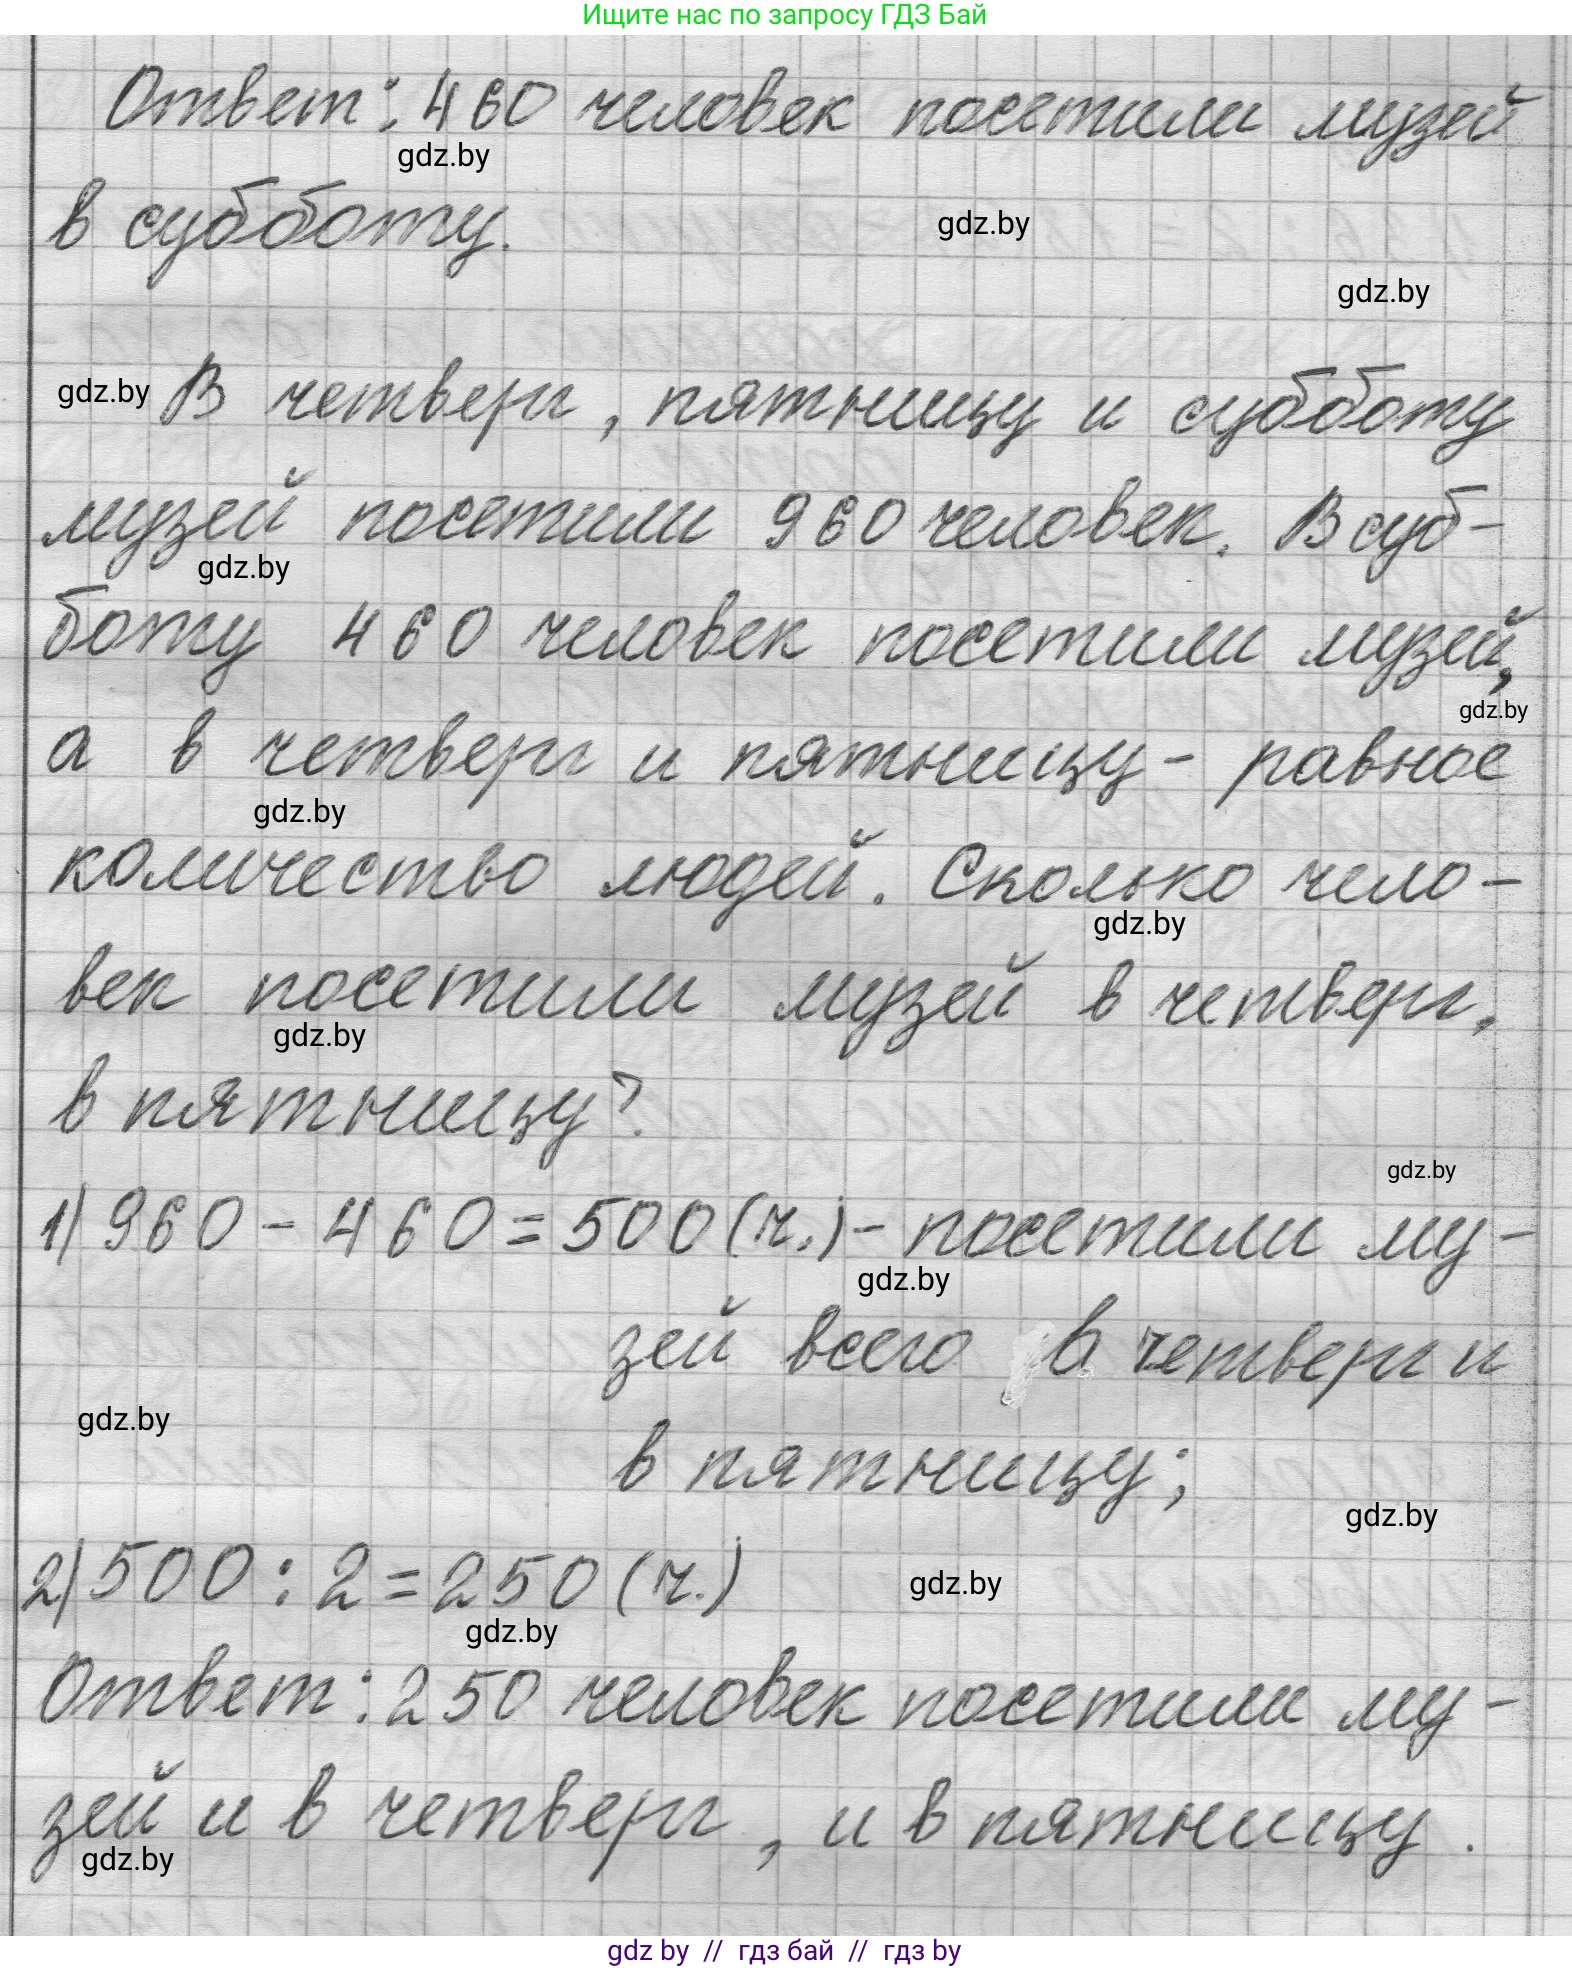 Ищите нас по запросу ГДЗ Бай
Ответ: 460 человек посетили музей
gdz.by
в субботу.
gdz.by
gdz.by
gdz.by
В четверг, пятницу и субботу
музей посетили 960 человек. В суб-
gdz.by
боту 460 человек посетили музей,
gdz.by
а в четверг и пятницу - равное
gdz.by
количество людей. Сколько чело-
gdz.by
век посетили музей в четверг,
gdz.by
в пятницу?
gdz.by
1) 960 - 460 = 500 (ч.) - посетили му-
gdz.by
зей всего в четверг и
gdz.by
в пятницу;
gdz.by
2) 500 : 2 = 250 (ч.)
gdz.by
gdz.by
Ответ: 250 человек посетили му-
зей и в четверг, и в пятницу.
gdz.by
gdz by // гдз бай // гдз by